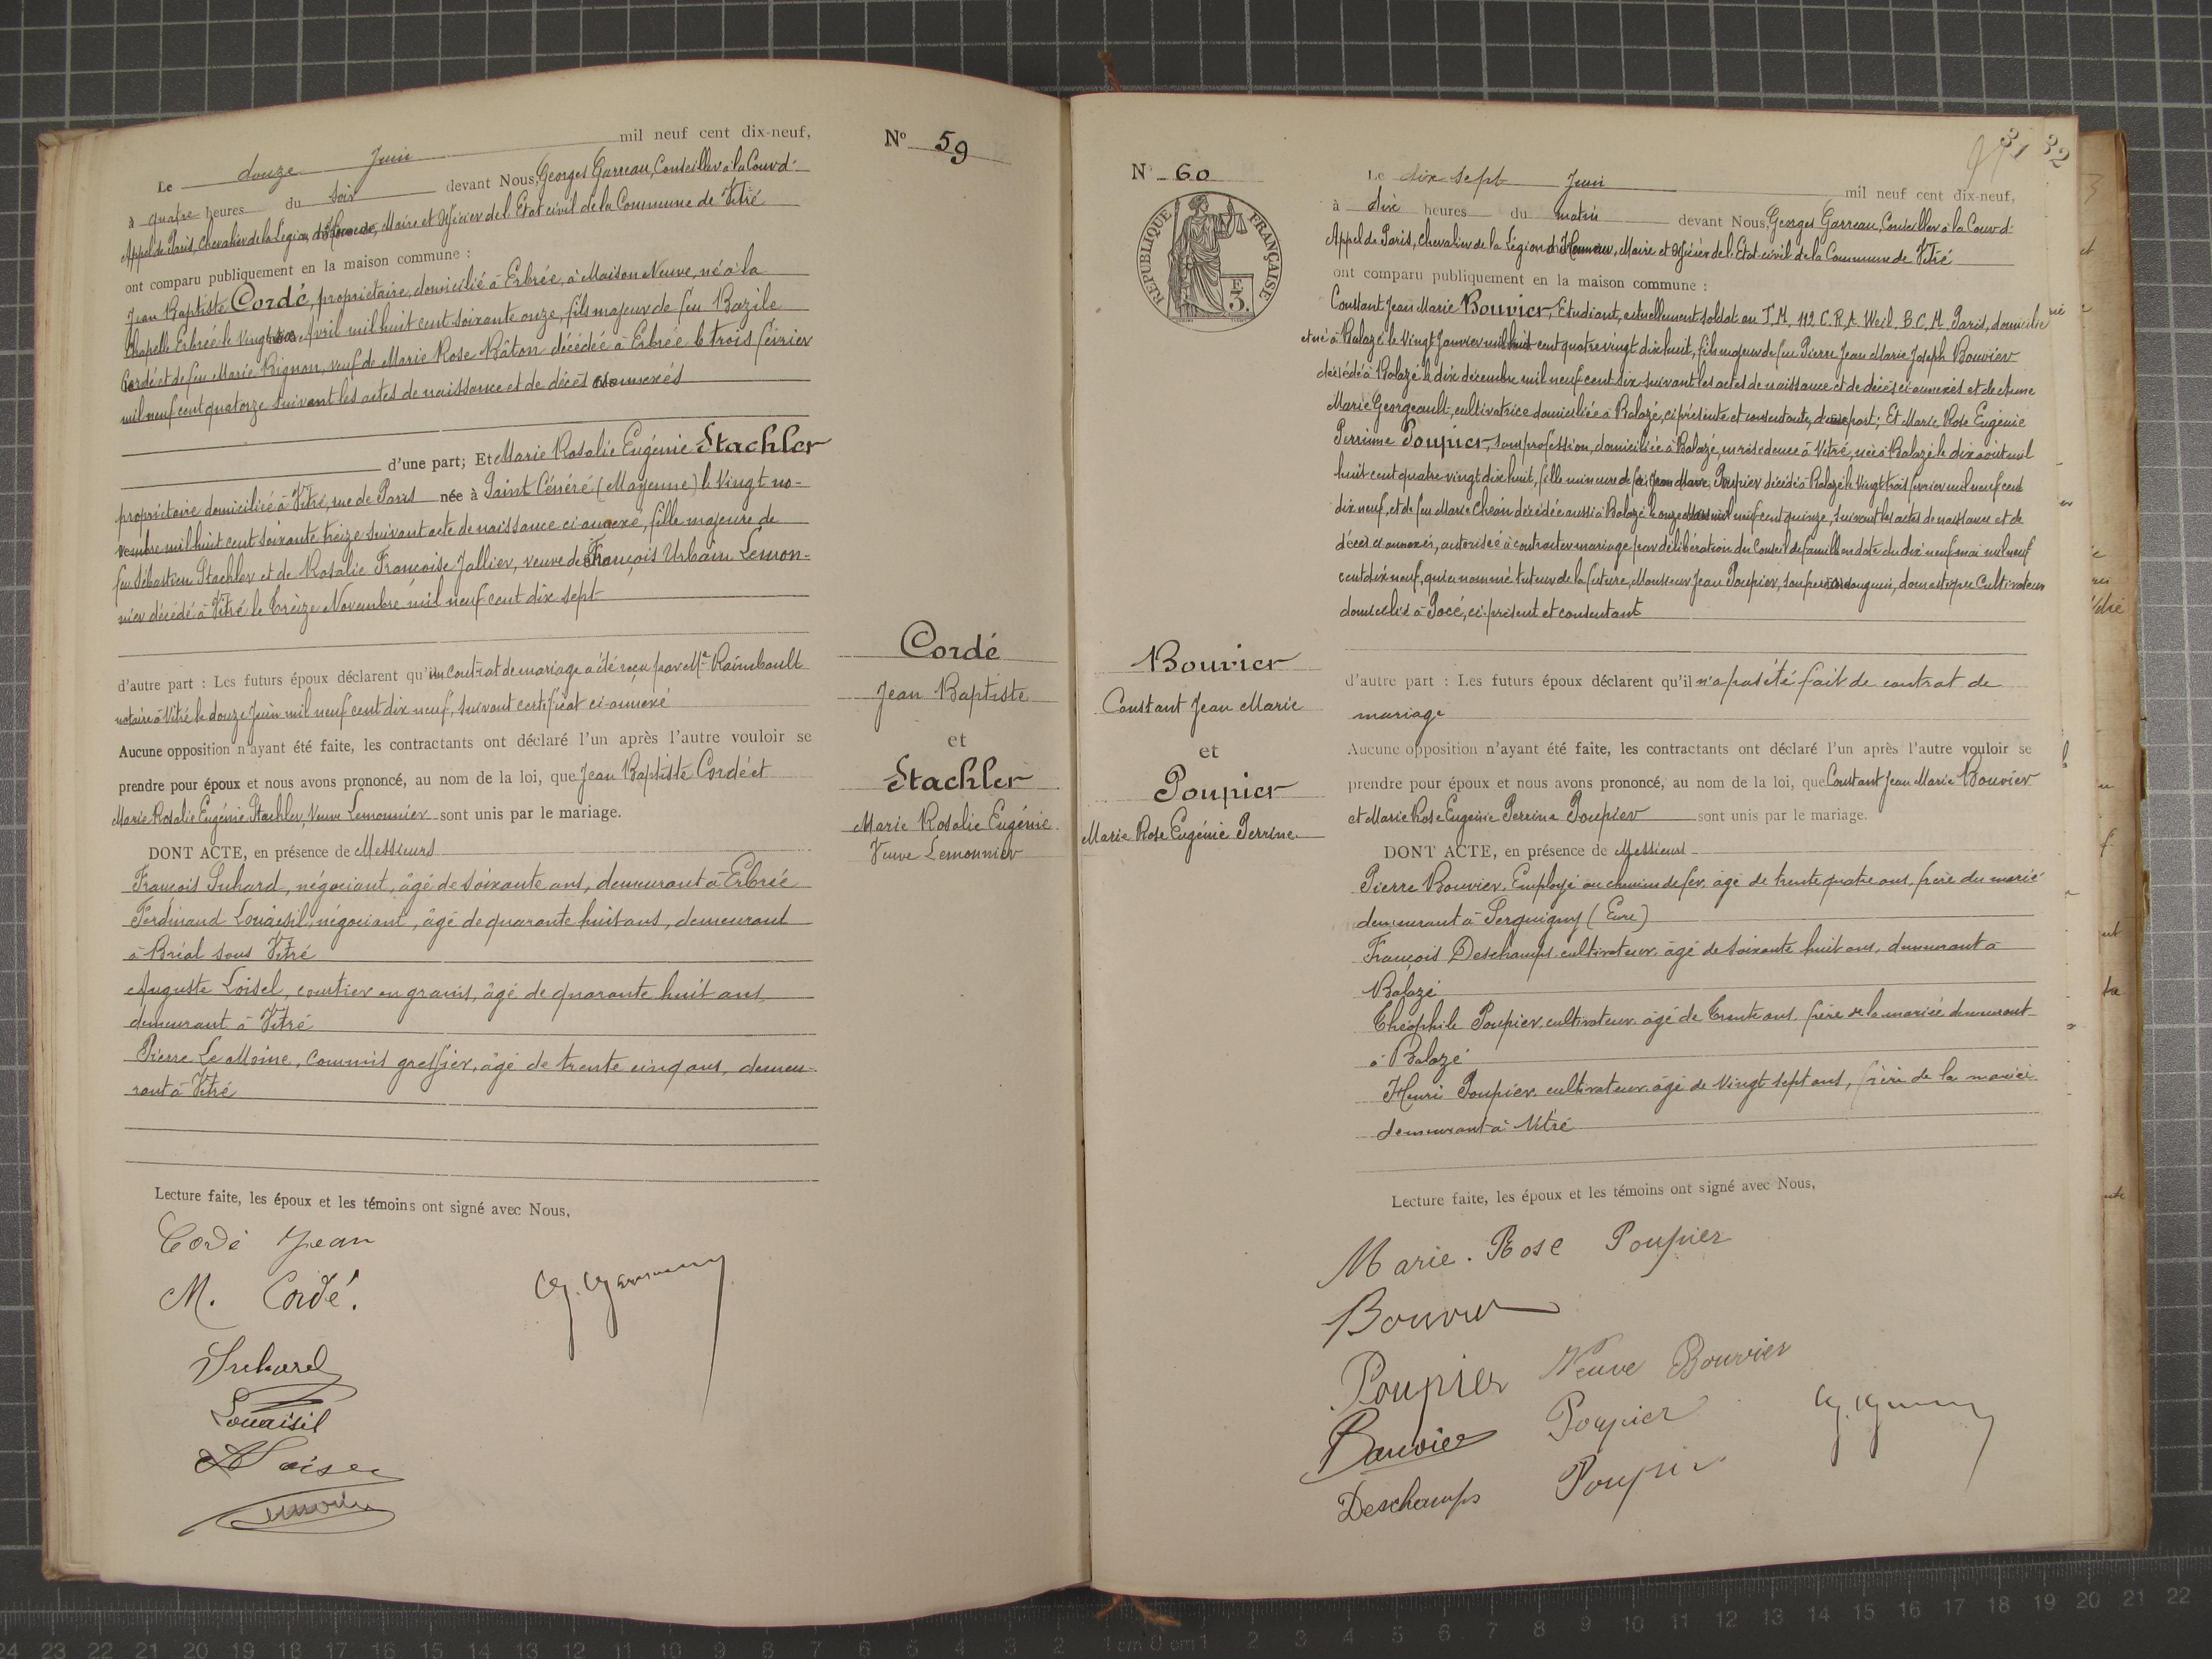 Le douze Juin mil neuf cent dix-neuf,
à quatre heures du soir devant Nous, Georges Garreau, Conseiller à la Cour d'
Appel de Paris, Chevalier de la Légion d'Honneur, Maire et Officier de l'Etat civil de la Commune de Vitré
ont comparu publiquement en la maison commune :
Jean Baptiste Cordé, propriétaire, domicilié à Erbrée, à Maison Neuve, né à la
Chapelle Erbrée le Vingt Avril mil huit cent soixante onze, fils majeur de feu Bazile
Cordé et de feu Marie Rignon, veuf de Marie Rose Bâton décédée à Erbrée le trois février
mil neuf cent quatorze suivant les actes de naissance et de décès annexés
d'une part; Et Marie Rosalie Eugénie Stachler
propriétaire domiciliée à Vitré, rue de Paris née à Saint Cénéré (Mayenne) le Vingt no-
vembre mil huit cent soixante treize suivant acte de naissance ci-annexé, fille majeure de
feu Sébastien Stachler et de Rosalie Françoise Jallier, veuve de François Urbain Lemon-
nier décédé à Vitré le treize Novembre mil neuf cent dix sept
d'autre part : Les futurs époux déclarent qu'un contrat de mariage a été reçu par Me Raimbault
notaire à Vitré le douze Juin mil neuf cent dix neuf, suivant certificat ci-annexé
Aucune opposition n'ayant été faite, les contractants ont déclaré l'un après l'autre vouloir se
prendre pour époux et nous avons prononcé, au nom de la loi, que Jean Baptiste Cordé et
Marie Rosalie Eugénie Stachler, Veuve Lemonnier sont unis par le mariage.
DONT ACTE, en présence de Messieurs
François Suhard, négociant, âgé de soixante ans, demeurant à Erbrée
Ferdinand Louaisil, négociant, âgé de quarante huit ans, demeurant
à Bréal sous Vitré
Auguste Loisel, courtier en grains, âgé de quarante huit ans
demeurant à Vitré
Pierre Le Moine, commis greffier, âgé de trente cinq ans, demeu-
rant à Vitré
Lecture faite, les époux et les témoins ont signé avec Nous,
Cordé Jean
M. Cordé.
Suhard
Louaisil
No 59
Cordé
Jean Baptiste
et
Stachler
Marie Rosalie Eugénie
Veuve Lemonnier
N° 60
RÉPUBLIQUE FRANÇAISE
F
3.
Bouvier
Constant Jean Marie
et
Poupier
Marie Rose Eugénie Perrine
31 32
Le dix sept Juin mil neuf cent dix-neuf,
à dix heures du matin devant Nous, Georges Garreau, Conseiller à la Cour d'
Appel de Paris, Chevalier de la Légion d'Honneur, Maire et Officier de l'Etat-civil de la Commune de Vitré
ont comparu publiquement en la maison commune :
Constant Jean Marie Bouvier, Etudiant, actuellement soldat au T.M. 112 C.R.A. Weil. B.C.M. Paris, domicilié
et né à Balazé le Vingt Janvier mil huit cent quatre vingt dix huit, fils majeur de feu Pierre Jean Marie Joseph Bouvier
décédé à Balazé le dix décembre mil neuf cent six suivant les actes de naissance et de décès ci-annexés et de
Marie Georgeault, cultivatrice domiciliée à Balazé, ci-présente et consentante, d'une part; Et Marie Rose Eugénie
Perrine Poupier, sans profession, domiciliée à Balazé, en résidence à Vitré, née à Balazé le dix août mil
huit cent quatre vingt dix huit, fille mineure de feu Jean Marie Poupier décédé à Balazé le Vingt trois février mil neuf cent
dix neuf, et de feu Marie Chéan décédée aussi à Balazé le onze mil neuf cent quinze, suivant les actes de naissance et de
décès ci-annexés, autorisée à contracter mariage par délibération du Conseil de famille en date du dix neuf mai mil neuf
cent dix neuf, qui a nommé tuteur de la future, Monsieur Jean Poupier, cultivateur
domicilié à Pocé, ci-présent et consentant
d'autre part : Les futurs époux déclarent qu'il n'a pas été fait de contrat de
mariage
Aucune opposition n'ayant été faite, les contractants ont déclaré l'un après l'autre vouloir se
prendre pour époux et nous avons prononcé, au nom de la loi, que Constant Jean Marie Bouvier
et Marie Rose Eugénie Perrine Poupier sont unis par le mariage.
DONT ACTE, en présence de Messieurs
Pierre Bouvier, Employé au chemin de fer, âgé de trente quatre ans, frère du marié
demeurant à Serquigny (Eure)
François Deschamps cultivateur, âgé de soixante huit ans, demeurant à
Balazé
Théophile Poupier, cultivateur, âgé de trente ans, frère de la mariée demeurant
à Balazé
Henri Poupier, cultivateur, âgé de Vingt sept ans, frère de la mariée
demeurant à Vitré
Lecture faite, les époux et les témoins ont signé avec Nous,
Marie. Rose Poupier
Bouvier
Poupier Veuve Bouvier
Bouvier Poupier
Deschamps Poupier
24 23 22 21 20 19 18 17 16 15 14 13 12 11 10 9 8 7 6 5 4 3 2 1 cm 0 cm 1 2 3 4 5 6 7 8 9 10 11 12 13 14 15 16 17 18 19 20 21 22